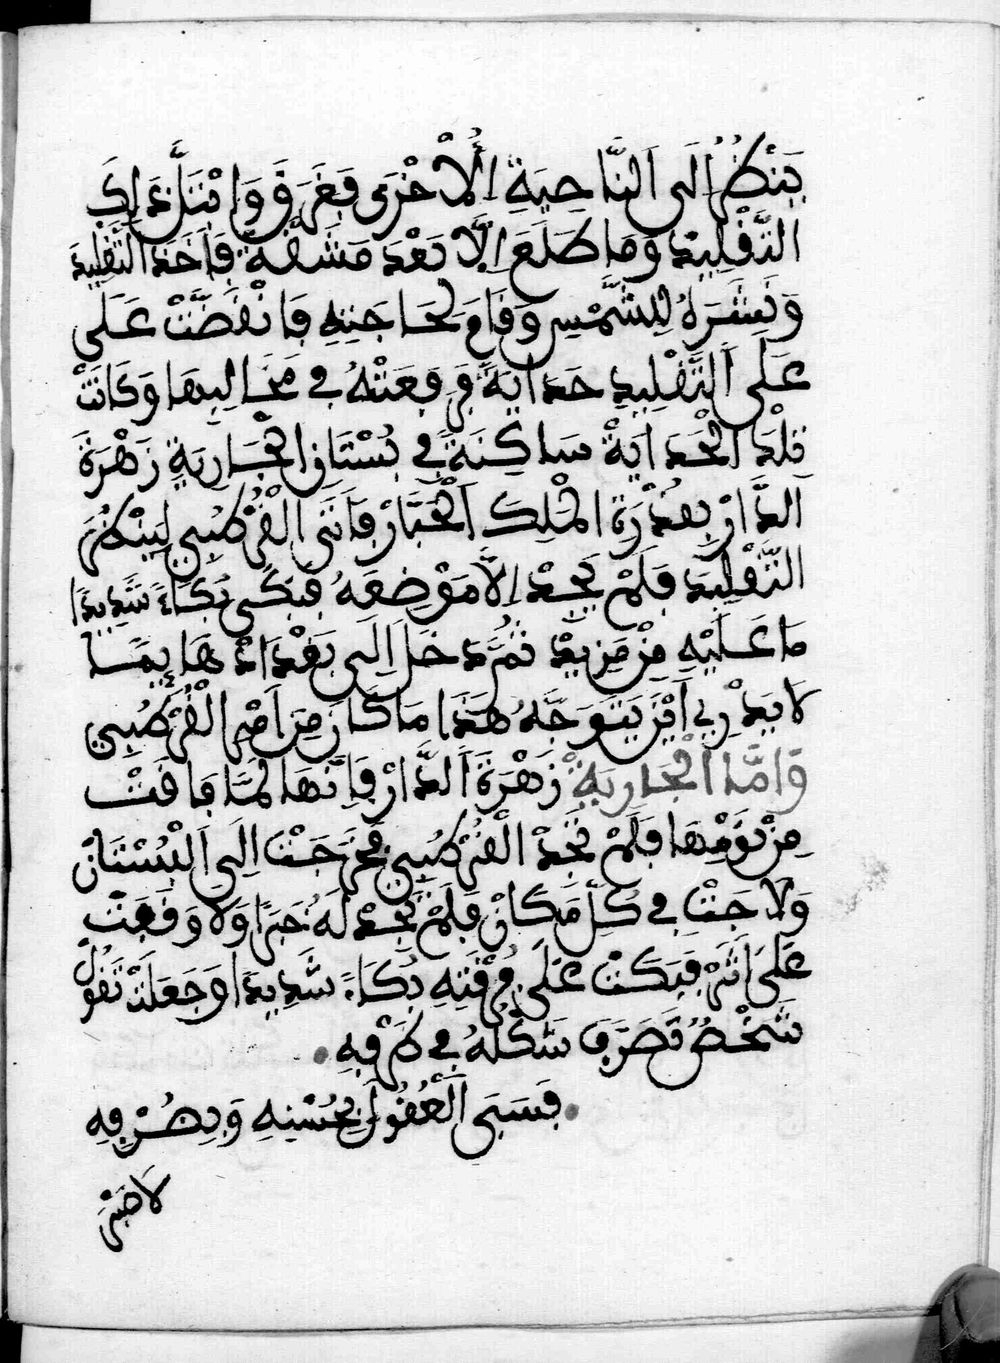 يَنْظُرُ اِلَى اَلنَّاحِيَةِ اِلْأُخْرَى فَغَرَقَ وَابْتَلَّ ذَلِكَ
التَّقْلِيد وَمَا طَلَعَ اِلَّا بَعْدَ مَشَقَّة فَأَخَذَ التَّقْلِيدَ
وَنَشَرَهُ لِلشَّمْسِ وَقَامَ لِحَاجَتِهِ فَانْقَضَّتْ عَلَى
عَلَى اَلتَّقْلِيدِ حَدَايَةً فَرَفَعَتْهُ فِي مَخَالِيبِهَا وَكَانَتْ
تِلْدَ الْحَدَايَةْ سَاكِنَةً فِي بُسْتَانِ الْجَارِيَةِ زَهْرَةَ
اَلدَّارْ بِقُدْرَةِ الْمَلِكَ اَلْجَبَّارْ فَأَتَى الْقُرْطُبِي لِيَنْظُرَ
التَّقْلِيدَ فَلَمْ يَجِدْ اِلَّا مَوْضِعَهُ فَبَكَى بُكَاءً شَدِيدًا
مَا عَلَيْهِ مِنْ مَزِيدْ ثُمَّ دَخَلَ اِلَى بَغْدَادْ هَايِمًا
لَا يَدْرِي اَيْنَ يَتَوَجَّهُ هَذَا مَا كَانَ مِنَ اَمْرِ الْقُرْطُبِي
وَامَّا الْجَارِيَةِ زَهْرَةَ اَلدَّارْ فَاِنَّهَا لَمَّا فَاقَتْ
مِنْ نَوْمِهَا فَلَمْ تَجِدْ الْقُرْطُبِي فَخَرَجَتْ اِلَى اَلْبُسْتَانْ
وَلَا جَتْ فِي كُلِّ مَكَانْ فَلَمْ تَجِدْ لَهُ خَبَرًا وَلَا وَقَعَتْ
عَلَى اَثَرْ فَبَكَتْ عَلَى فُرْقَتِهِ بُكَاءً شَدِيدًا وَجَعَلَتْ تَقُولُ
شَخْصٌ تَصَرَّفَ شَكْلُهُ فِي طَرْفِهِ
فَسَبَى اَلْعُقُولَ بِحُسْنِهِ وَبِظُرْفِهِ
لَا صَبْرَ